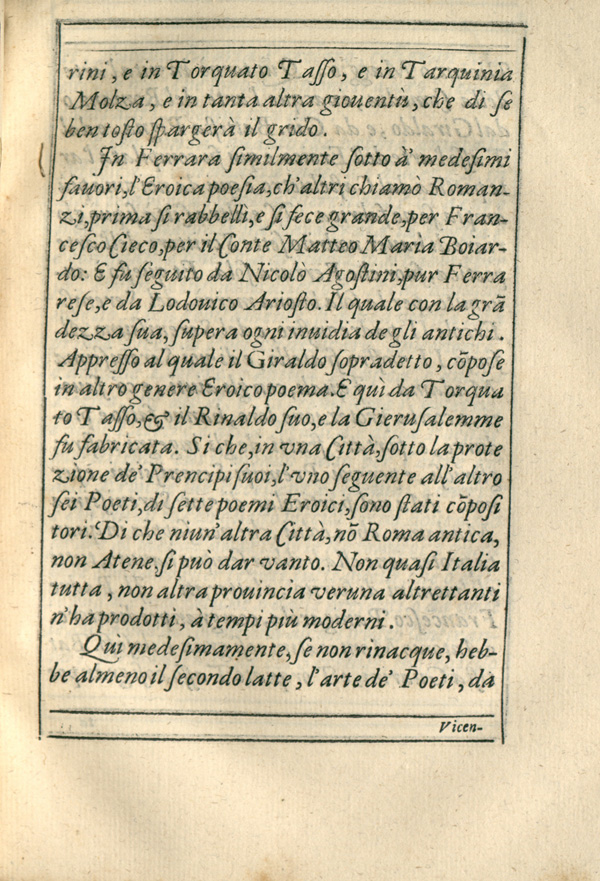 rini, e in Torquato Tasso, e in Tarquinia
Molza, e in tanta altra giouentù, che di se
ben tosto spargerà il grido.
In Ferrara similmente sotto à medesimi
fauori, l'Eroica poesia, ch'altri chiamò Roman-
zi, prima si rabbellì, e si fece grande, per Fran-
cesco Cieco, per il Conte Matteo Maria Boiar-
do: E fu seguito da Nicolò Agostini, pur Ferra
rese, e da Lodouico Ariosto. Il quale con la grā
dezza sua, supera ogni inuidia de gli antichi.
Appresso al quale il Giraldo sopradetto, cōpose
in altro genere Eroico poema. E quì da Torqua
to Tasso, & il Rinaldo suo, e la Gierusalemme
fu fabricata. Si che, in vna Città, sotto la prote
zione de' Prencipi suoi, l'vno seguente all'altro
sei Poeti, di sette poemi Eroici, sono stati cōposi
tori. Di che niun'altra Città, nō Roma antica,
non Atene, si può dar vanto. Non quasi Italia
tutta, non altra prouincia veruna altrettanti
n'ha prodotti, à tempi più moderni.
Quì medesimamente, se non rinacque, heb-
be almeno il secondo latte, l'arte de' Poeti, da
Vicen-